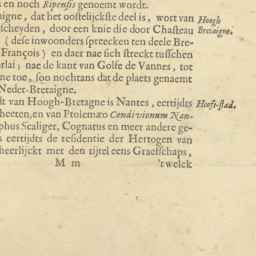 s en noch Ripensis genoemt wordt.
aigne, dat het oostelijckste deel is, wort van Hoogh
scheyden, door een knie die door Chasteau Bretaigne.
(dese inwoonders spreecken een deele Bre-
François) en daer nae sich streckt tusschen
rlai, nae de kant van Golfe de Vannes, tot
ne toe, soo nochtans dat de plaets genaemt
Neder-Bretaigne.
dt van Hoogh-Bretagne is Nantes, eertijdts Hooft-stad.
heeten, en van Ptolemæo Condivionum Nan-
phus Scaliger, Cognatus en meer andere ge-
s eertijdts de residentie der Hertogen van
heerlijckt met den tijtel eens Graefschaps,
M m 'twelck